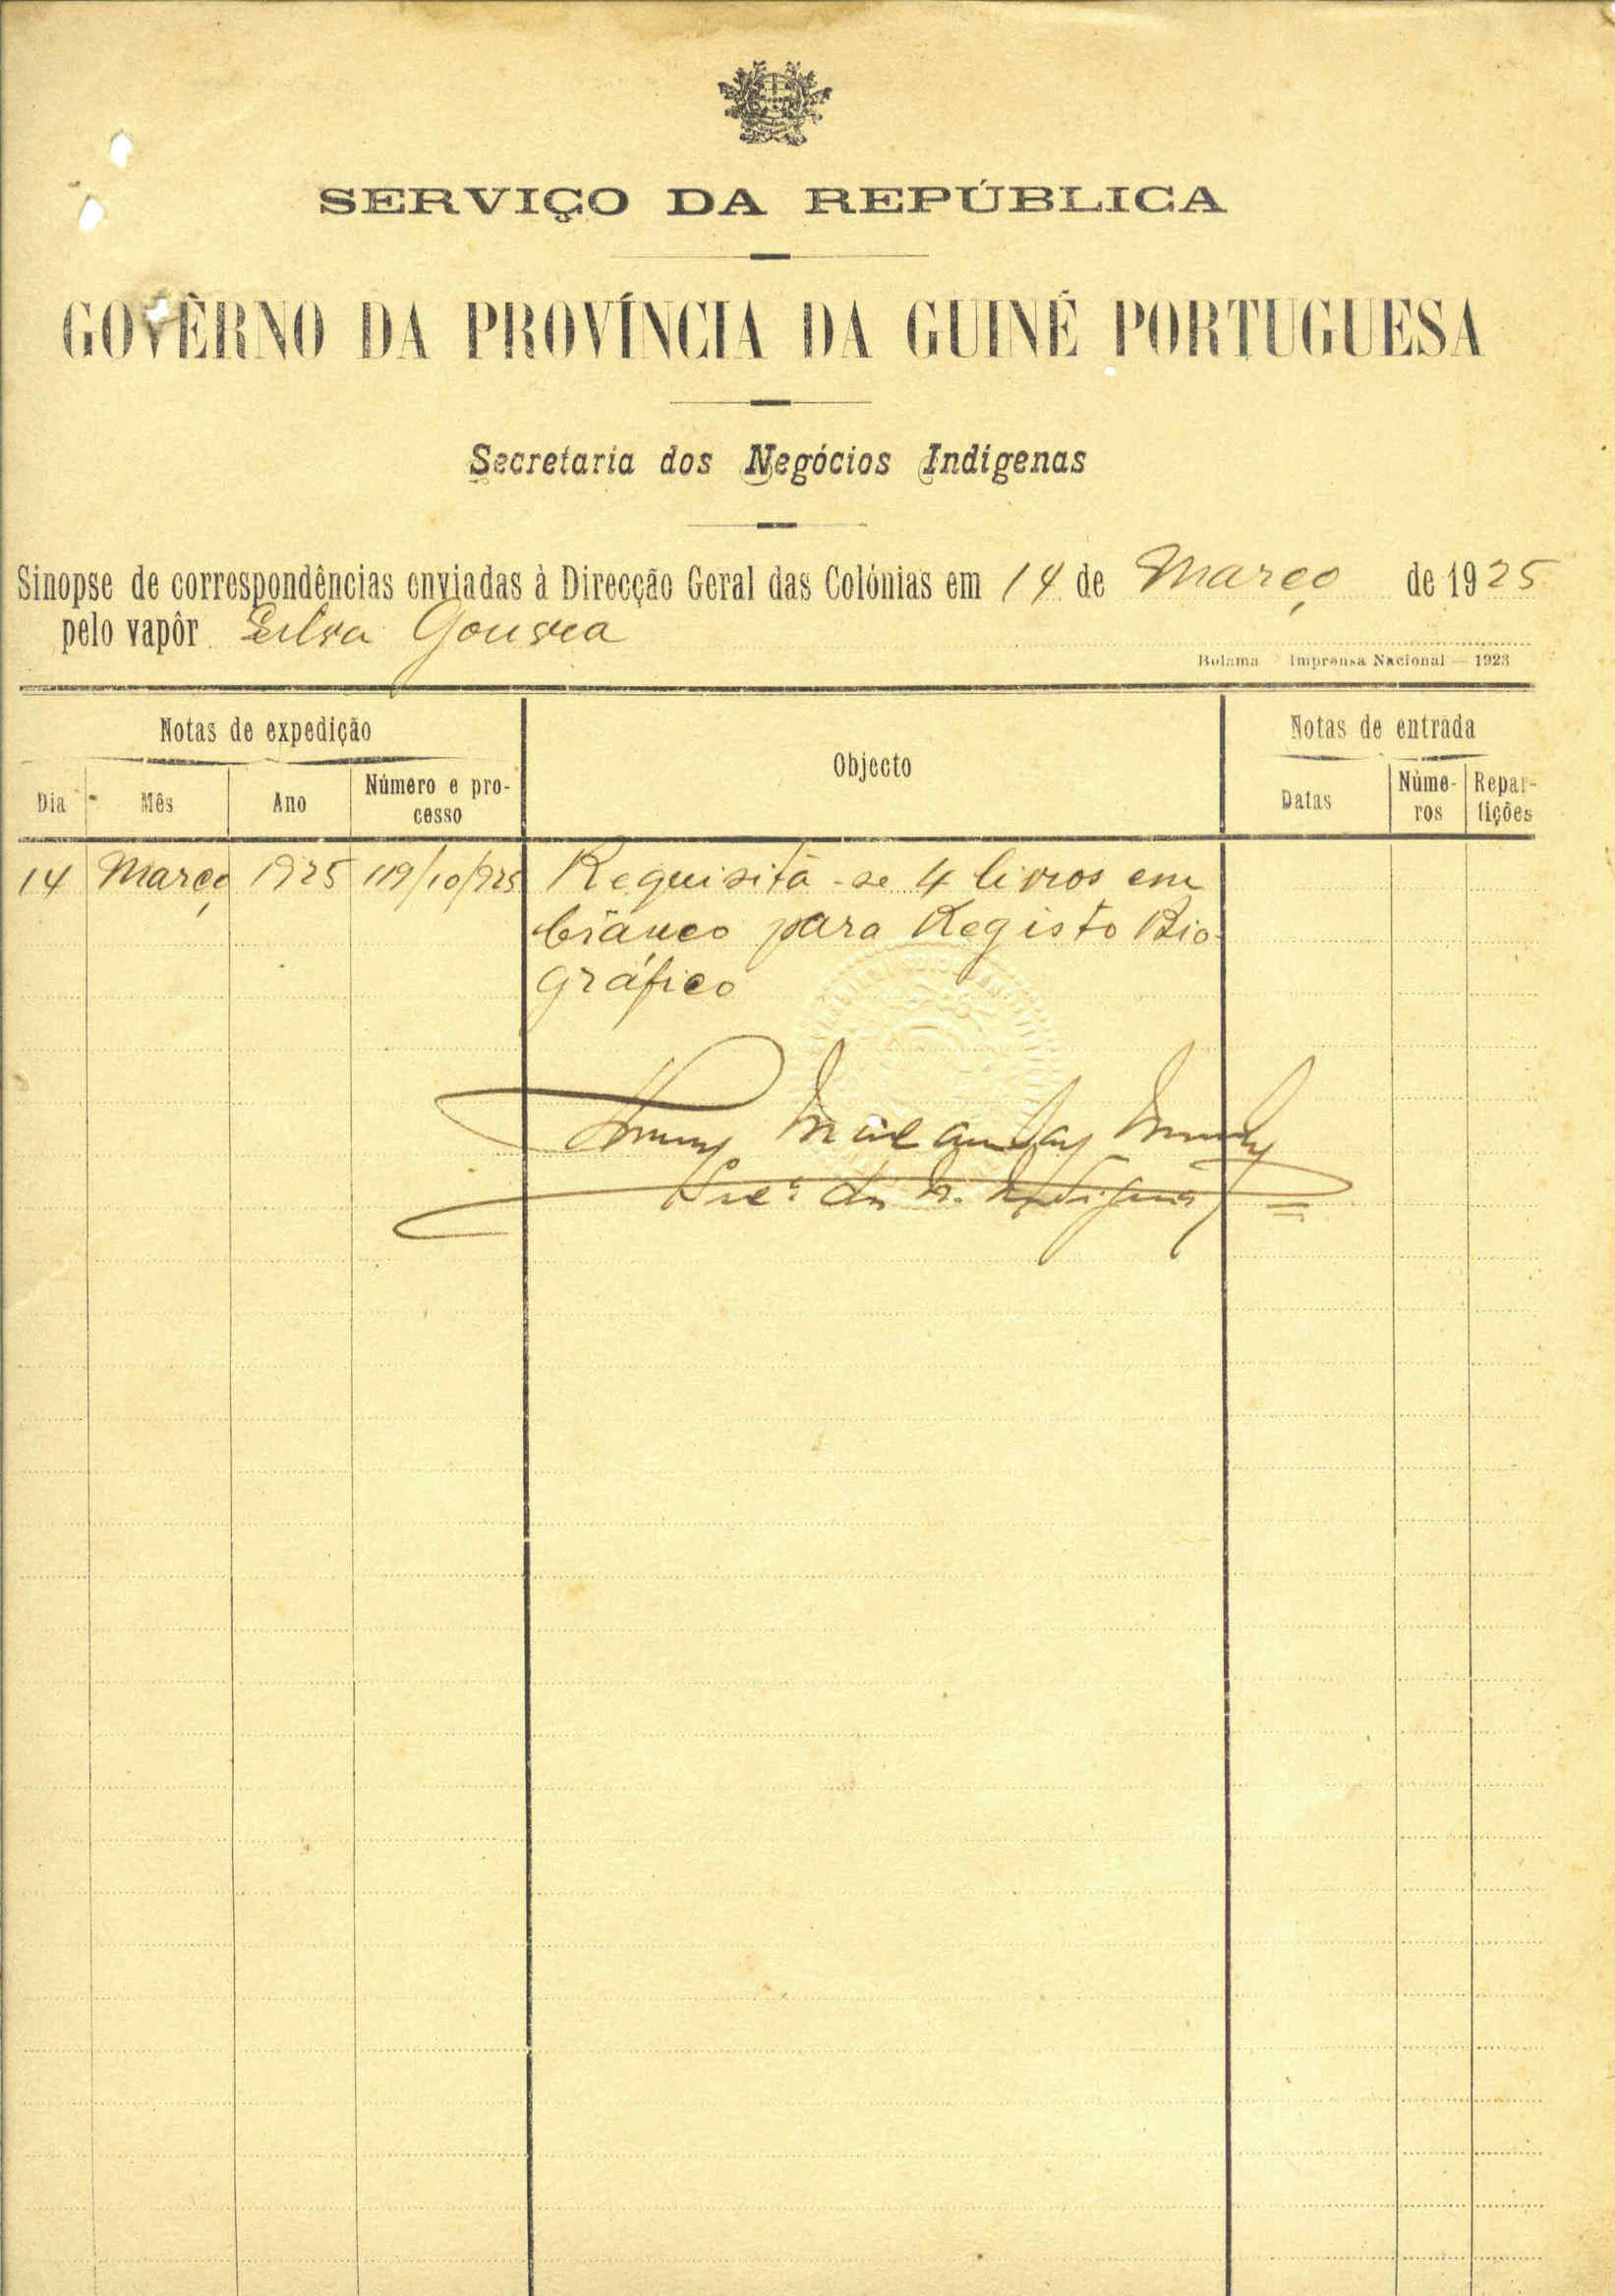 SERVIÇO DA REPÚBLICA
GOVÊRNO DA PROVÍNCIA DA GUINÉ PORTUGUESA
Secretaria dos Negócios Indígenas
Sinopse de correspondências enviadas à Direcção Geral das Colónias em 14 de Março de 1925
pelo vapôr Silva Gouvea
Bolama — Imprensa Nacional — 1923
Notas de expedição
Objecto
Notas de entrada
Dia
Mês
Ano
Número e pro-
cesso
Datas
Núme-
ros
Repar-
tições
14 Março 1925 119/10/925 Requisita-se 4 livros em
branco para Registo Bio-
gráfico